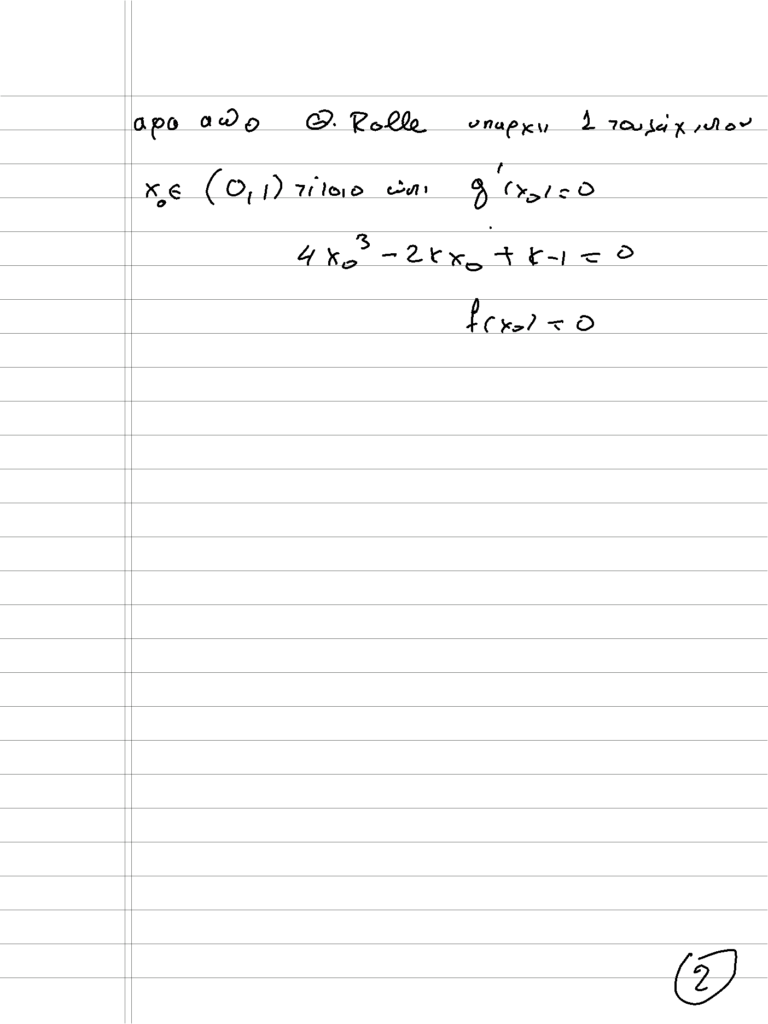 αρα απο Θ. Rolle υπαρχει 1 τουλάχιστον
x₀ ∈ (0,1) τέτοιο ώστε g'(x₀) = 0
4x₀³ - 2κx₀ + κ-1 = 0
f(x₀) = 0
2